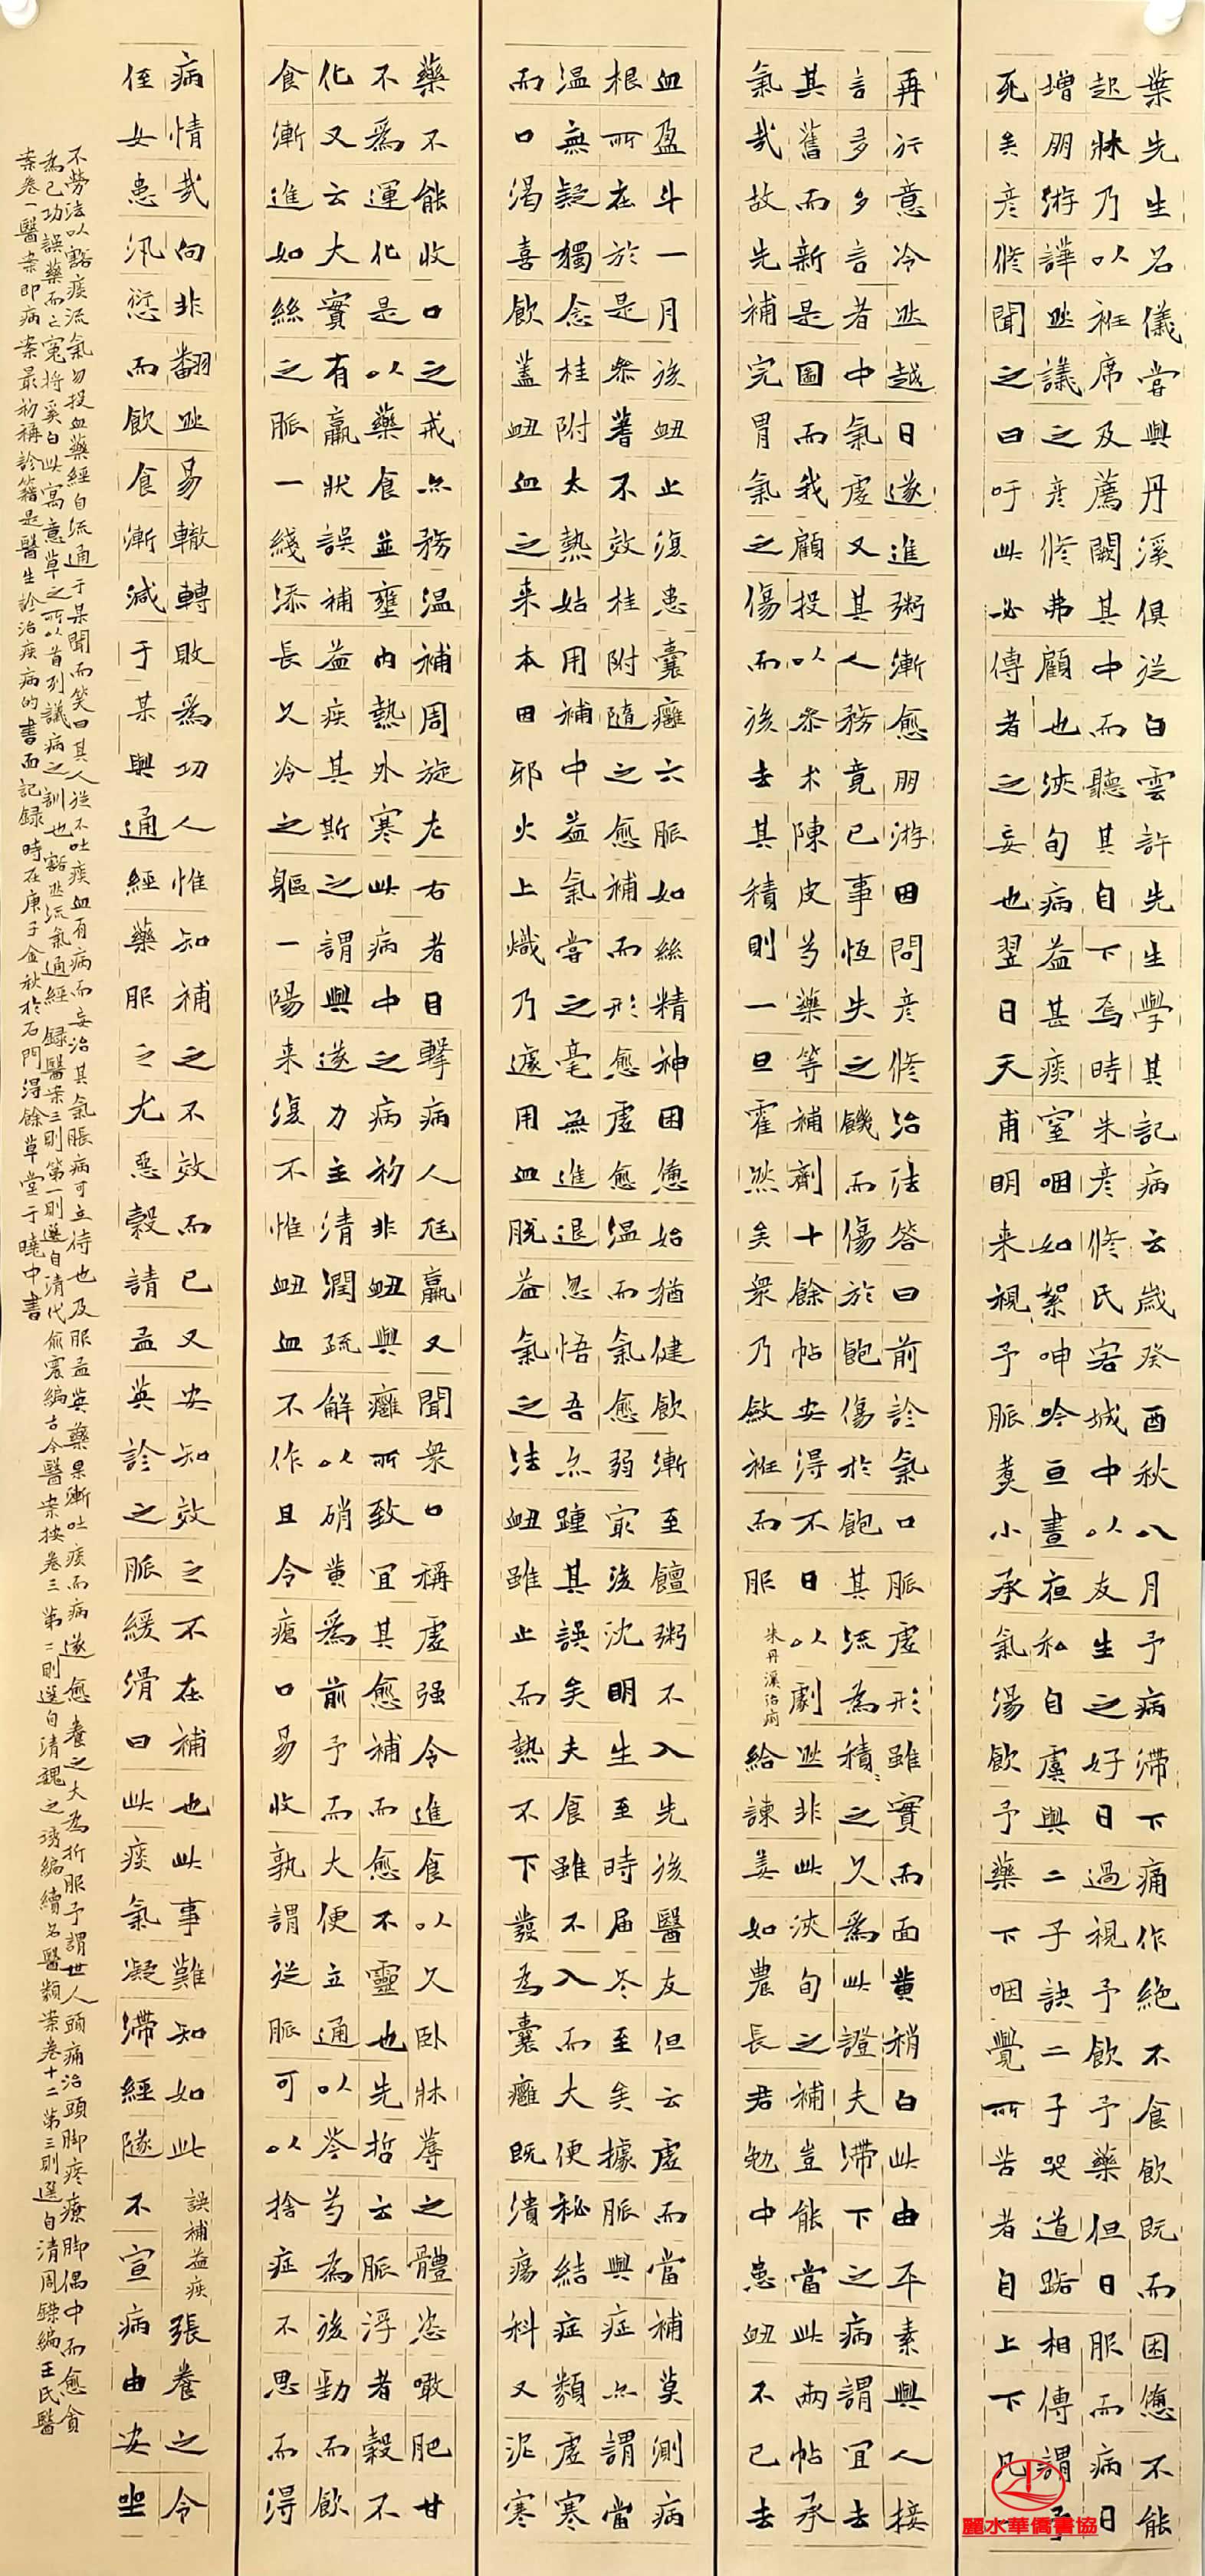 葉先生名儀嘗與丹溪俱從白雲許先生學其記病云歲癸酉秋八月予病滯下痛作絕不食飲既而困憊不能
起牀乃以衽席及薦闕其中而聽其自下焉時朱彥修氏客城中以友生之好日過視予飲予藥但日服而病日
增朋游譁然議之彥修弗顧也浹旬病益甚痰窒咽如絮呻吟亘晝夜私自虞與二子訣二子哭道路相傳謂予
死矣彥修聞之曰吁此必傳者之妄也翌日天甫明來視予脈煑小承氣湯飲予藥下咽覺所苦者自上下凡
再行意冷然越日遂進粥漸愈朋游因問彥修治法答曰前診氣口脈虛形雖實而面黃稍白此由平素與人接
言多多言者中氣虛又其人務竟已事恆失之饑而傷於飽傷於飽其流為積積之久為此證夫滯下之病謂宜去
其舊而新是圖而我顧投以參朮陳皮芍藥等補劑十餘帖安得不日以劇然非此浹旬之補豈能當此兩帖承
氣哉故先補完胃氣之傷而後去其積則一旦霍然矣眾乃斂衽而服
朱丹溪治痢
給諫姜如農長君勉中患衄不已去
血盈斗一月後衄止復患囊癰六脈如絲精神困憊始猶健飲漸至饘粥不入先後醫友但云虛而當補莫測病
根所在於是參蓍不效桂附隨之愈補而形愈虛愈溫而氣愈弱最後沈明生至時屆冬至矣據脈與症亦謂當
溫無疑獨念桂附太熱姑用補中益氣嘗之毫無進退忽悟吾亦踵其誤矣夫食雖不入而大便秘結症類虛寒
而口渴喜飲蓋衄血之來本因邪火上熾乃遽用血脫益氣之法衄雖止而熱不下發為囊癰既潰瘍科又泥寒
藥不能收口之戒亦務溫補周旋左右者目擊病人尫羸又聞眾口稱虛強令進食以久臥牀蓐之體恣噉肥甘
不為運化是以藥食並壅內熱外寒此病中之病初非衄與癰所致宜其愈補而愈不靈也先哲云脈浮者穀不
化又云大實有羸狀誤補益疾其斯之謂與遂力主清潤疏解以硝黃為前予而大便立通以芩芍為後勁而飲
食漸進如絲之脈一綫添長久冷之軀一陽來復不惟衄血不作且令瘡口易收孰謂從脈可以捨症不思而得
病情哉向非翻然易轍轉敗為功人惟知補之不效而已又安知效之不在補也此事難知如此
誤補益疾
張養之令
侄女患汛愆而飲食漸減于某與通經藥服之尤惡穀請孟英診之脈緩滑曰此痰氣凝滯經隧不宣病由安坐
不勞法以豁痰流氣勿投血藥經自流通于某聞而笑曰其人從不吐痰血有病而妄治其氣脹病可立待也及服孟英藥果漸吐痰而病遂愈養之大為折服予謂世人頭痛治頭腳疼療腳偶中而愈貪
為己功誤藥而亡冤將奚白此寓意草之所以首列議病之訓也豁然流氣通經 錄醫案三則第一則選自清代俞震編古今醫案按卷三第二則選自清魏之琇編續名醫類案卷十二第三則選自清周鑅編王氏醫
案卷一醫案即病案最初稱診籍是醫生診治疾病的書面記錄 時在庚子金秋於石門得餘草堂于曉中書
麗水華僑書協